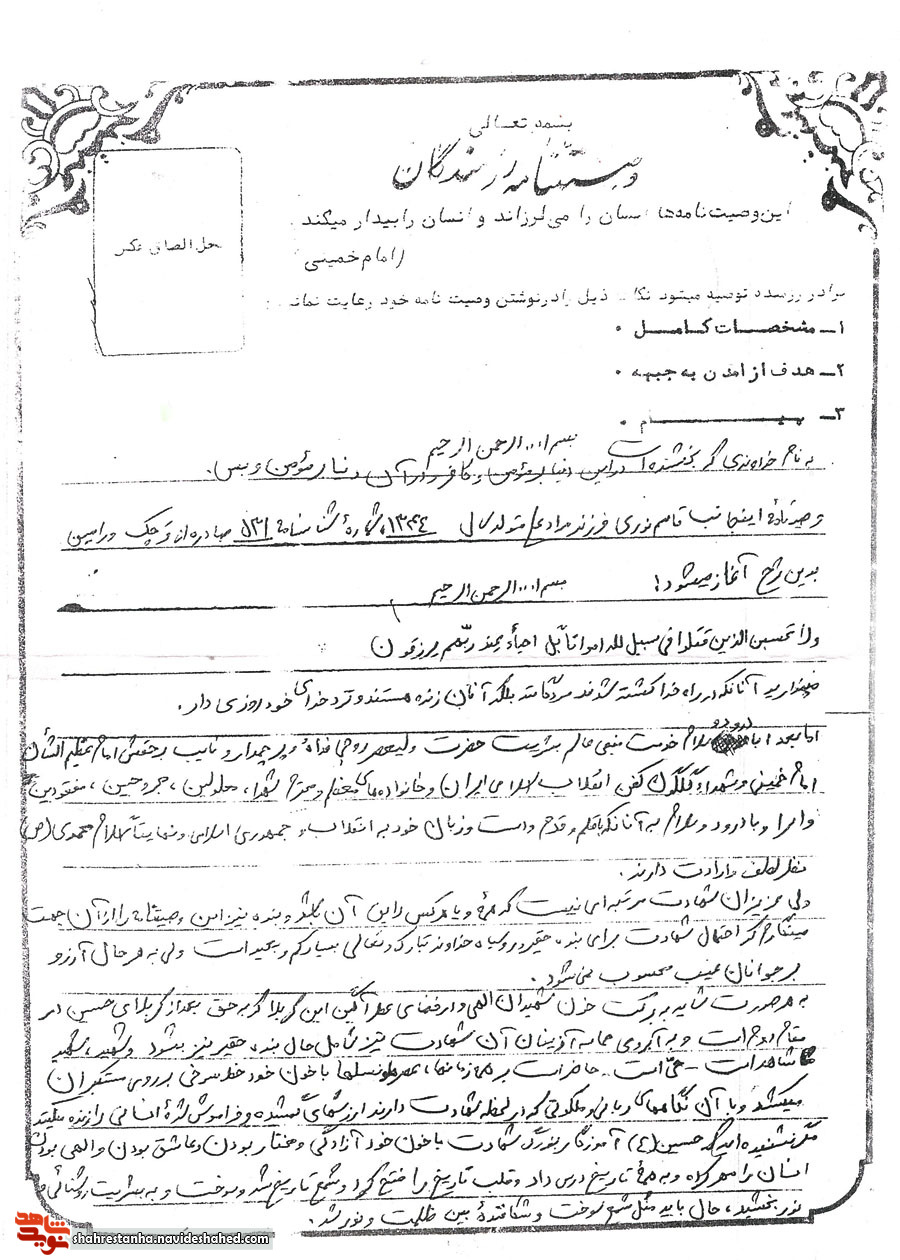 بسمه تعالی
وصیتنامه رزمندگان
محل الصاق عکس
این وصیت‌نامه‌ها انسان را می‌لرزاند و انسان را بیدار میکند.
(امام خمینی)
برادر رزمنده توصیه میشود نکات ذیل را در نوشتن وصیت نامه خود رعایت نمائید
۱ـ مشخصات کامل.
۲ـ هدف از آمدن به جبهه.
۳ـ پیام.
بسم ا... الرحمن الرحیم
به نام خداوندی که بخشنده است در این دنیا بر مؤمن و کافر و در آن دنیا بر مؤمن و بس.
وصیتنامه اینجانب قاسم نوری فرزند مرادعلی متولد سال ۱۳۴۴، شمارهٔ شناسنامه ۵۳۱ صادره از قرچک ورامین
بدین شرح آغاز میشود!
بسم ا... الرحمن الرحیم
ولا تحسبن الذین قتلوا فی سبیل الله امواتا بل احیاء عند ربهم یرزقون
مپندارید آنانکه در راه خدا کشته شدند مرده‌اند بلکه آنان زنده هستند و نزد خدای خود روزی دارند.
اما بعد، با درود و سلام خدمت منجی عالم بشریت حضرت ولیعصر روحی فداه و پرچمدار و نایب برحقش امام عظیم الشأن
امام خمینی و شهداء گلگون کفن انقلاب اسلامی ایران و خانواده‌های معظم و محترم شهدا، معلولین، مجروحین، مفقودین
و اسرا و با درود و سلام به آنانکه با قلم و قدم و است و زبان خود به انقلاب و جمهوری اسلامی و نهایتاً اسلام محمدی (ص)
نظر لطف و ارادت دارند.
ولی عزیزان شهادت مرتبه‌ای نیست که همه و یا هر کس لایق آن باشد و بنده نیز این وصیتنامه را از آن جهت
مینگارم که احتمال شهادت برای بنده حقیر و روسیاه خداوند تبارک و تعالی بسیار کم و بعید است ولی به هر حال آرزو
بر جوانان عیب محسوب نمی‌شود.
به هر صورت شاید به برکت خون شهیدان الهی و از فضای عطرآگین این کربلا که به حق بعد از کربلای حسین در
مقام دوم است و به آبروی حماسه آفرینان آن شهادت نیز شامل حال بنده حقیر نیز بشود و شهید، شهید
شاهد است - حی است - حاضر است بر همه زمانها، عصرها و نسلها با خون خود خط سرخی بر روی ستمگران
میکشد و با آن نگاههای ربانی و ملکوتی که در لحظه شهادت دارند ارزشهای گمشده و فراموش شدهٔ انسانی را زنده میکنند
مگر نشنیده‌اید که حسین (ع) آموزگار بزرگ شهادت با خون خود آزادگی و مختار بودن و عاشق بودن و الهی بودن
انسان را مهر کرد و به همهٔ تاریخ درس داد و قلب تاریخ را فتح کرد و شمع تاریخ شد و سوخت و به بشریت روشنائی و
نور بخشید، حال باید مثل شمع سوخت و شکافندهٔ بین ظلمت و نور شد.
نوید شاهد
shahrestanha.navideshahed.com